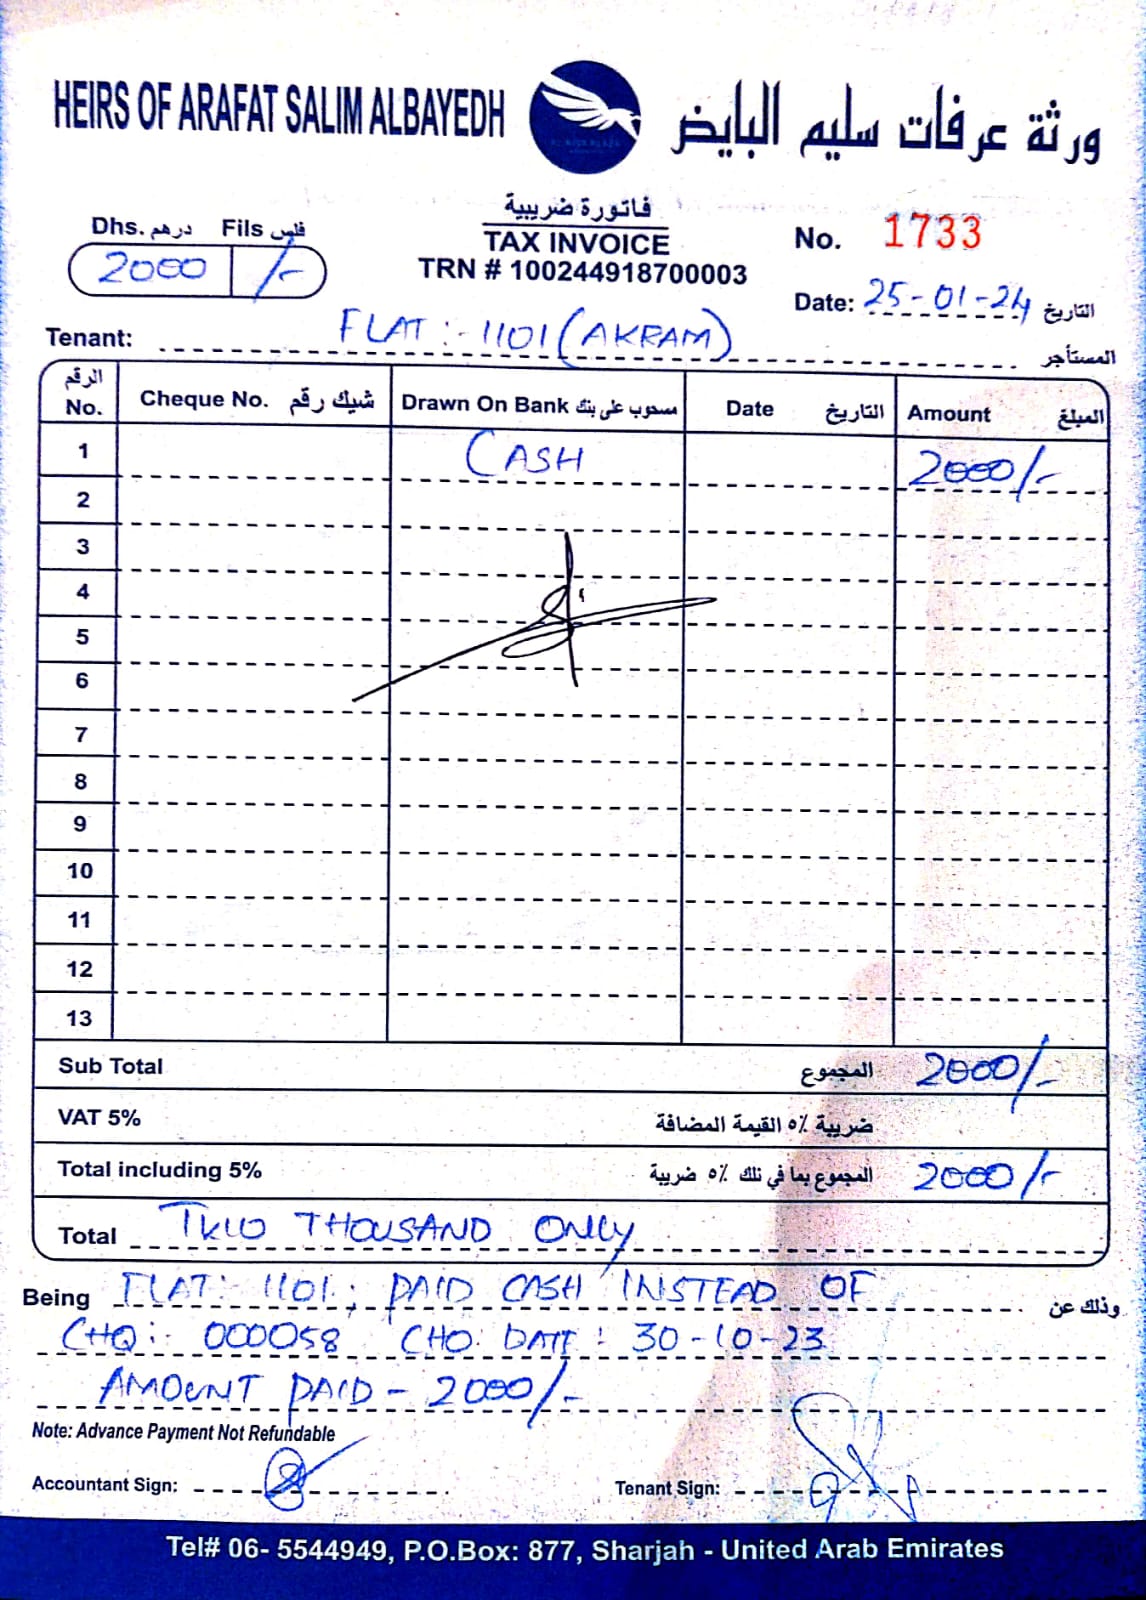 HEIRS OF ARAFAT SALIM ALBAYEDH ورثة عرفات سليم البايض
فاتورة ضريبية
TAX INVOICE
TRN # 100244918700003
Dhs. درهم Fils فلس
2000 /-
No. 1733
Date: 25-01-24 التاريخ
Tenant: FLAT:-1101 (AKRAM) المستأجر
الرقم No. Cheque No. شيك رقم Drawn On Bank مسحوب على بنك Date التاريخ Amount المبلغ
1 CASH 2000/-
2
3
4
5
6
7
8
9
10
11
12
13
Sub Total المجموع 2000/-
VAT 5% ضريبة ٥٪ القيمة المضافة
Total including 5% المجموع بما في تلك ٥٪ ضريبة 2000/-
Total TWO THOUSAND ONLY
Being FLAT:- 1101, PAID CASH INSTEAD OF وذلك عن
CHQ:- 000058 CHQ: DATE: 30-10-23
AMOUNT PAID - 2000/-
Note: Advance Payment Not Refundable
Accountant Sign: Tenant Sign:
Tel# 06- 5544949, P.O.Box: 877, Sharjah - United Arab Emirates